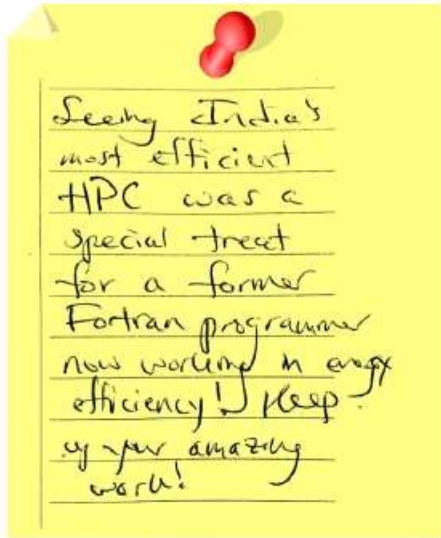 Seeing India's
most efficient
HPC was a
special treat
for a former
Fortran programmer
now working in energy
efficiency! Keep
up your amazing
work!